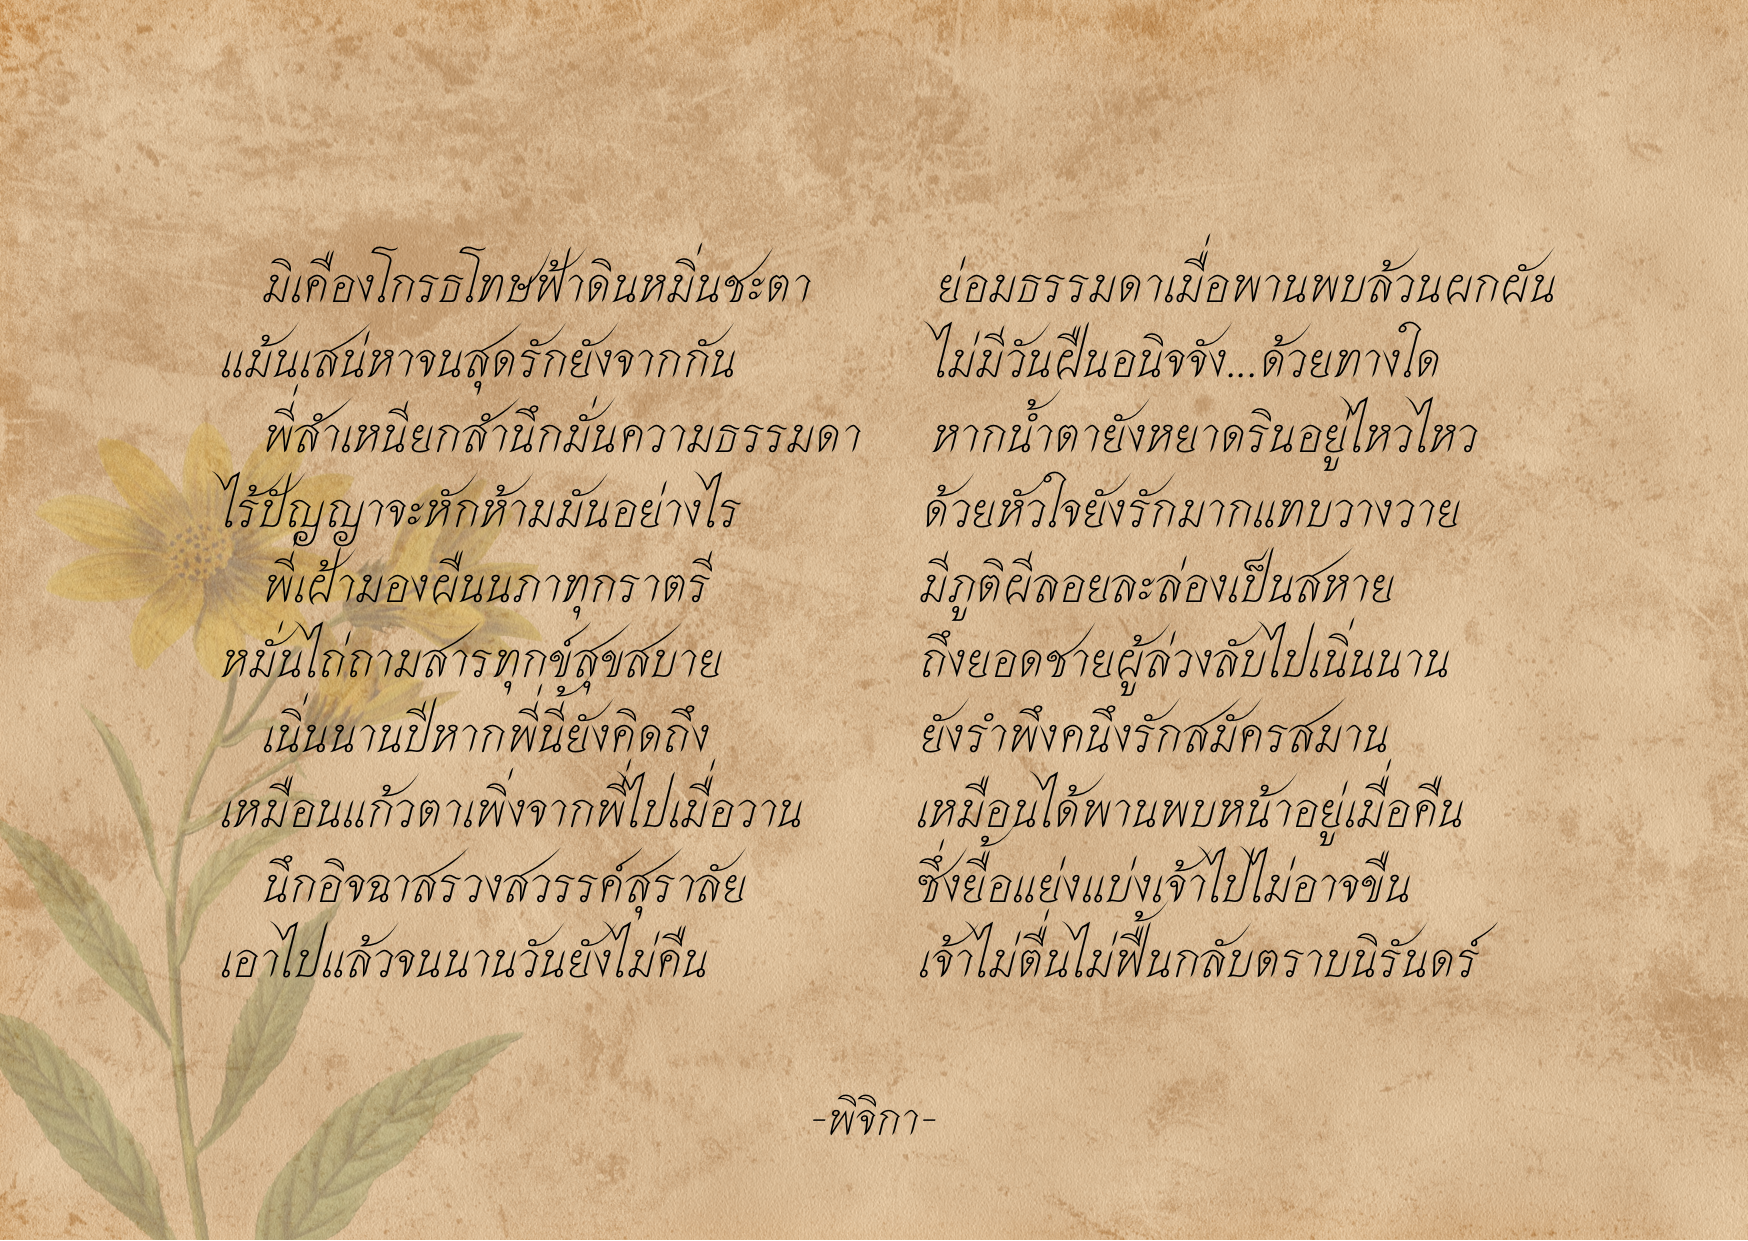 มิเคืองโกรธโทษฟ้าดินหมิ่นชะตา ย่อมธรรมดาเมื่อพานพบล้วนผกผัน
แม้นเสน่หาจนสุดรักยังจากกัน ไม่มีวันฝืนอนิจจัง...ด้วยทางใด
พี่สำเหนียกสำนึกมั่นความธรรมดา หากน้ำตายังหยาดรินอยู่ไหวไหว
ไร้ปัญญาจะหักห้ามมันอย่างไร ด้วยหัวใจยังรักมากแทบวางวาย
พี่เฝ้ามองผืนนภาทุกราตรี มีภูติผีลอยละล่องเป็นสหาย
หมั่นไถ่ถามสารทุกข์สุขสบาย ถึงยอดชายผู้ล่วงลับไปเนิ่นนาน
เนิ่นนานปีหากพี่นี้ยังคิดถึง ยังรำพึงคนึงรักสมัครสมาน
เหมือนแก้วตาเพิ่งจากพี่ไปเมื่อวาน เหมือนได้พานพบหน้าอยู่เมื่อคืน
นึกอิจฉาสรวงสวรรค์สุราลัย ซึ่งยื้อแย่งแบ่งเจ้าไปไม่อาจขืน
เอาไปแล้วจนนานวันยังไม่คืน เจ้าไม่ตื่นไม่ฟื้นกลับตราบนิรันดร์
-พิจิกา-